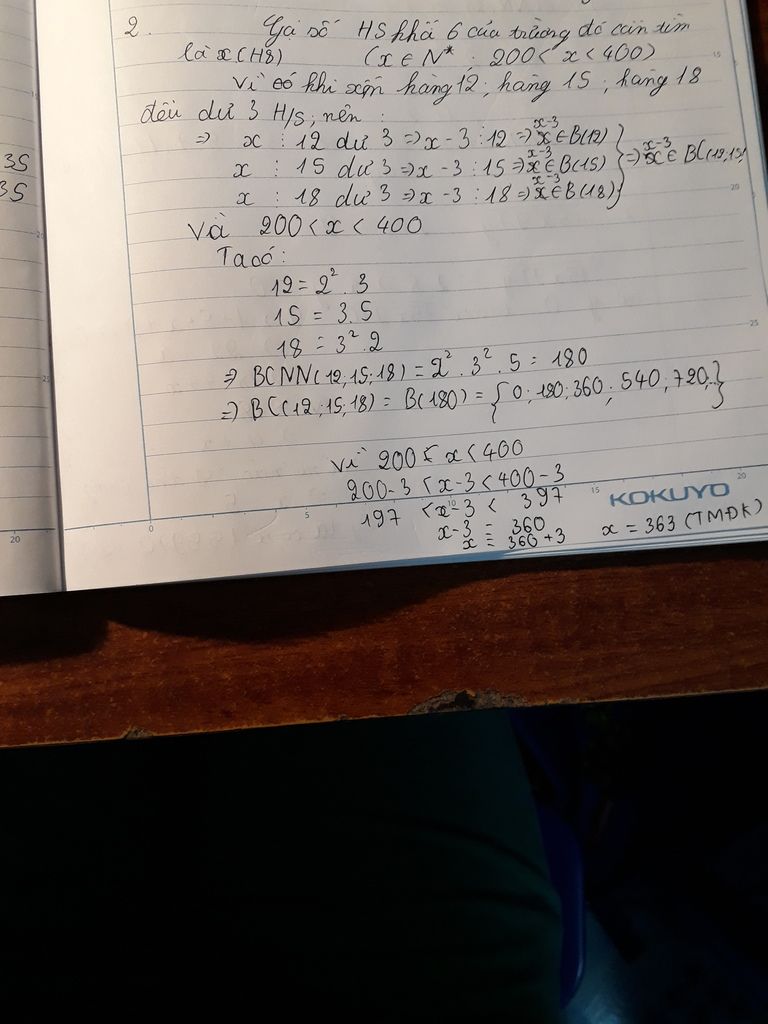 2. Gọi số HS khối 6 của trường đó cần tìm
là x (HS) (x ∈ N*; 200 < x < 400)
Vì số khi xếp hàng 12; hàng 15; hàng 18
đều dư 3 H/S, nên:
⇒ x : 12 dư 3 ⇒ x - 3 : 12 ⇒ x-3 ∈ B(12)
x : 15 dư 3 ⇒ x - 3 : 15 ⇒ x-3 ∈ B(15) ⇒ x-3 ∈ BC(12,15
x : 18 dư 3 ⇒ x - 3 : 18 ⇒ x-3 ∈ B(18)
Và 200 < x < 400
Ta có:
12 = 2². 3
15 = 3.5
18 = 3².2
⇒ BCNN(12;15;18) = 2². 3². 5 = 180
⇒ BC(12;15;18) = B(180) = {0; 180; 360; 540; 720;..}
vì 200 < x < 400
200-3 < x-3 < 400-3
197 < x-3 < 397
x-3 = 360
x = 360+3 x = 363 (TMĐK)
KOKUYO
35
35
0
5
10
15
20
15
20
25
20